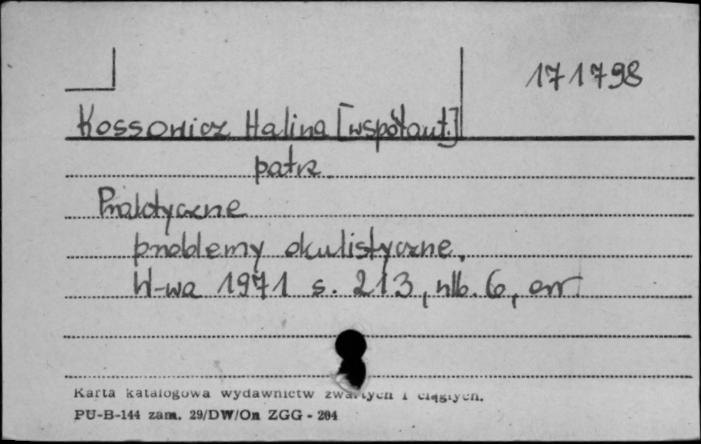 171798
Kossowicz Halina [współaut.]
patrz
Praktyczne
problemy okulistyczne.
W-wa 1971 s. 213, nlb. 6, err.
Karta katalogowa wydawnictw zwartych i ciągłych.
PU-B-144 zam. 29/DW/On ZGG - 204